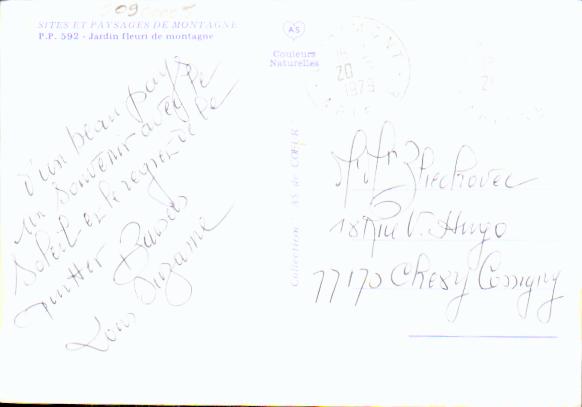 209
SITES ET PAYSAGES DE MONTAGNE
P.P. 592 - Jardin fleuri de montagne
AS
Couleurs
Naturelles
20
1979
Collection AS de CŒUR
d'un beau pays
un souvenir avec le
Soleil et le regret de le
quitter Baisers
Louis Suzanne
18 Rue V. Hugo
77170 Chevry Cossigny